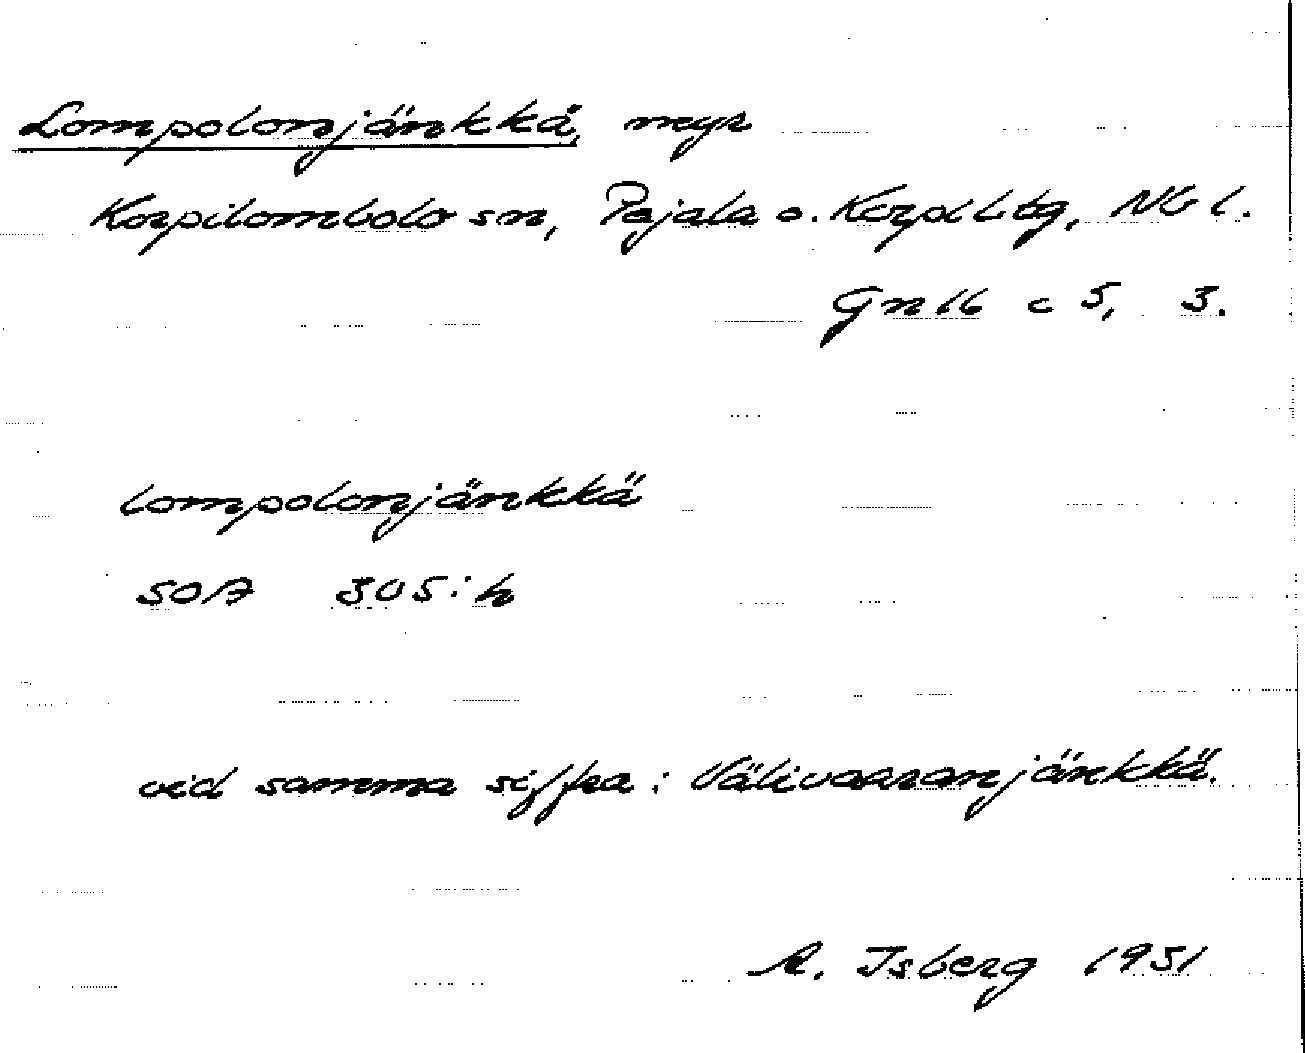 Lompolonjänkkä, myr
Korpilombolo sn, Pajala o. Korpil. tg, Nb l.
Gn 16 c 5, 3.
lompolonjänkkä
SOA 305:h
vid samma siffra: Välivaaranjänkkä.
A. Isberg 1951